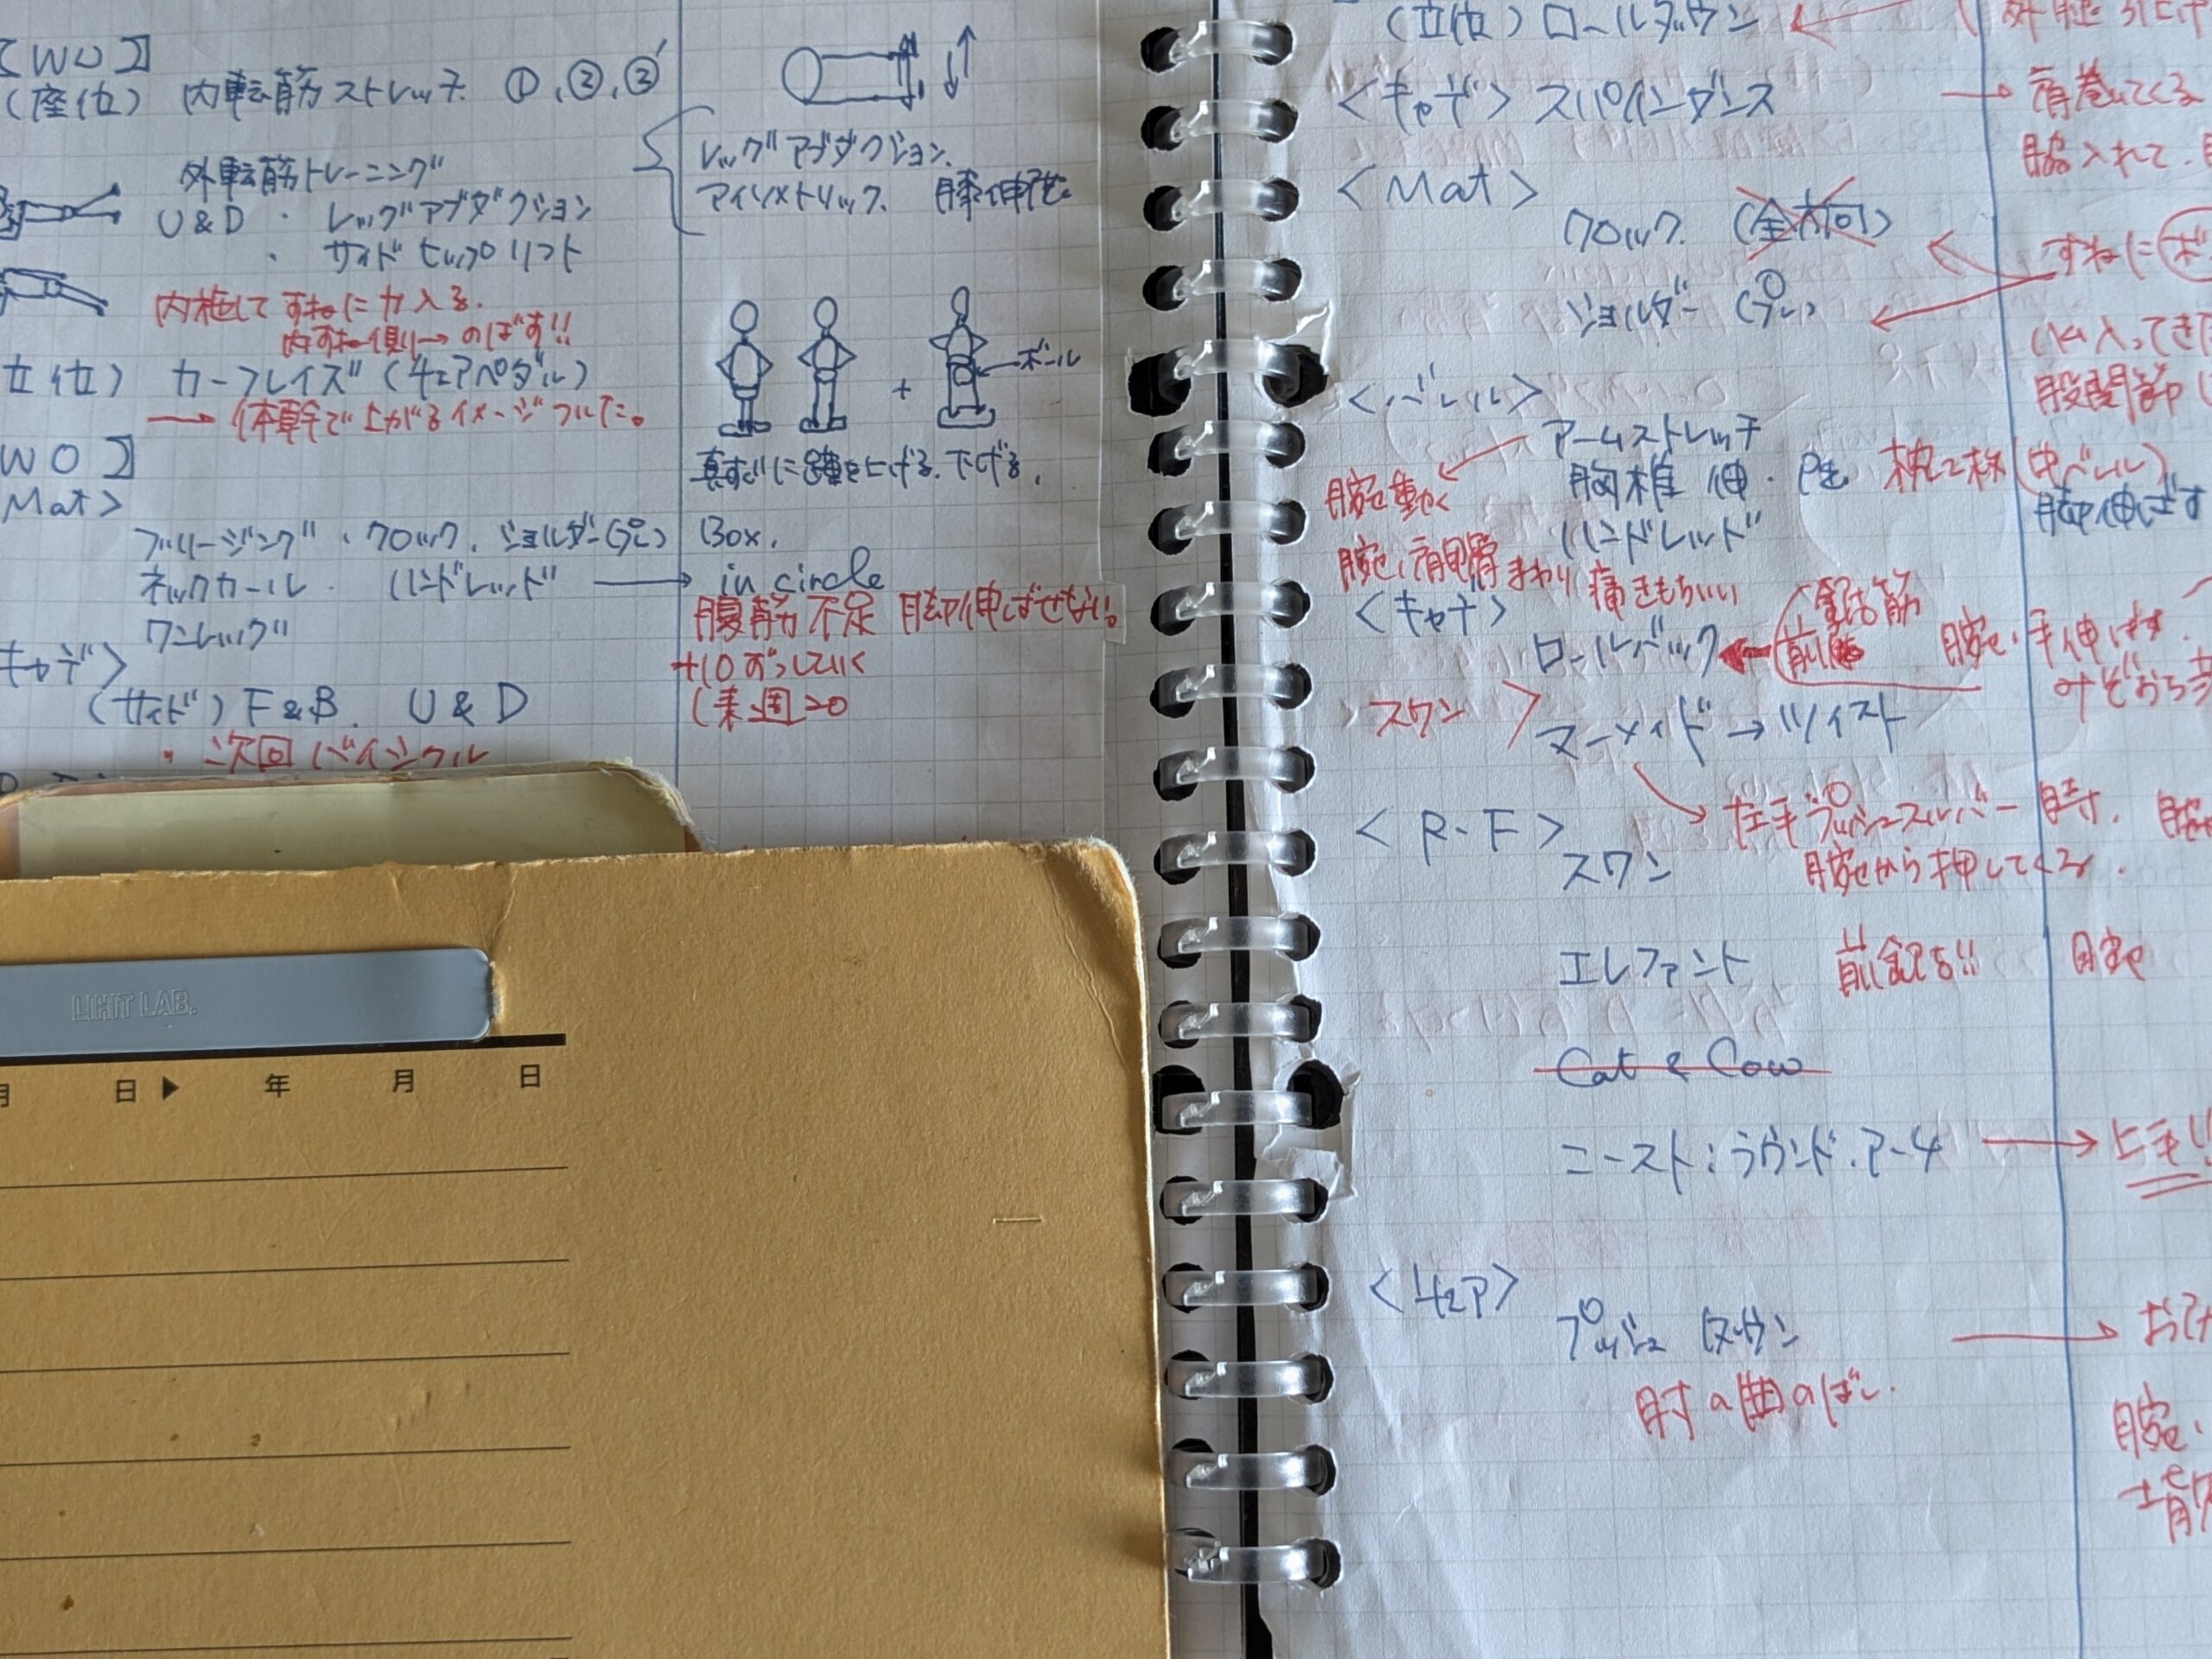 【WU】
(座位) 内転筋ストレッチ ①,②,③'
外転筋トレーニング
U&D ・ レッグアブダクション
・ サイドヒップリフト
内旋してすねに力入る.
内すね側→のばす!!
立位) カーフレイズ (チェアペダル)
→ 体幹で上がるイメージついた。
レッグアブダクション.
アイソメトリック. 膝伸展.
ボール
+
真すぐに踵を上げる.下げる.
WO】
Mat>
ブリージング・クロック.ショルダー(プレ)
ネックカール. ハンドレッド →
ワンレッグ
Box.
in circle
腹筋不足 脚伸ばせない。
+10ずつしていく
(来週20
キャデ>
(サイド) F&B. U&D
・次回バイシクル
LIHIT LAB.
月 日▶ 年 月 日
(立位) ロールダウン ←
<キャデ> スパインダンス
→ 背巻いてくる
脇入れて.
<Mat>
クロック. (全方向)
ショルダー (プレ)
すねに
入ってきた
股関節
<バレル>
アームストレッチ
胸椎 伸・
ハンドレッド
腕動く
腕、肩甲骨まわり痛きもちいい
(中バレル)
脚伸ばす
<キャデ>
ロールバック
前鋸筋
腕、手伸ばす.
みぞおち
スワン >
マーメイド→ツイスト
左手プッシュスルーバー時.
腕から押してくる.
<R.F>
スワン
エレファント 前鋸も!! 腕
Cat & Cow
ニースト:ラウンド.アーチ → 上手!!
<チェア>
プッシュダウン →
肘の曲のばし.
腕、
背